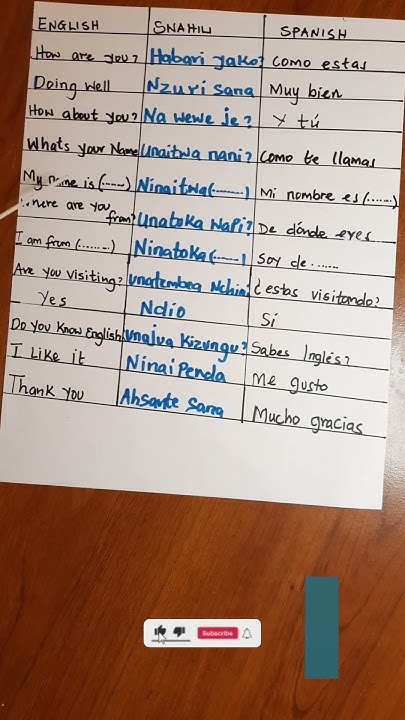 ENGLISH SWAHILI SPANISH
How are you? Habari yako? Como estas
Doing well Nzuri sana Muy bien
How about you? Na wewe je? Y tú
Whats your Name Unaitwa nani? Como te llamas
My name is (......) Ninaitwa(.........) Mi nombre es (.......)
Where are you from? Unatoka wapi? De dónde eres
I am from (........) Ninatoka(......) Soy de.......
Are you Visiting? unatembea Nchini ¿estas visitando?
Yes Ndio Sí
Do you Know English unajua Kizungu? Sabes Inglés?
I Like it Ninaipenda Me gusto
Thank you Ahsante Sana Mucho gracias
Subscribe